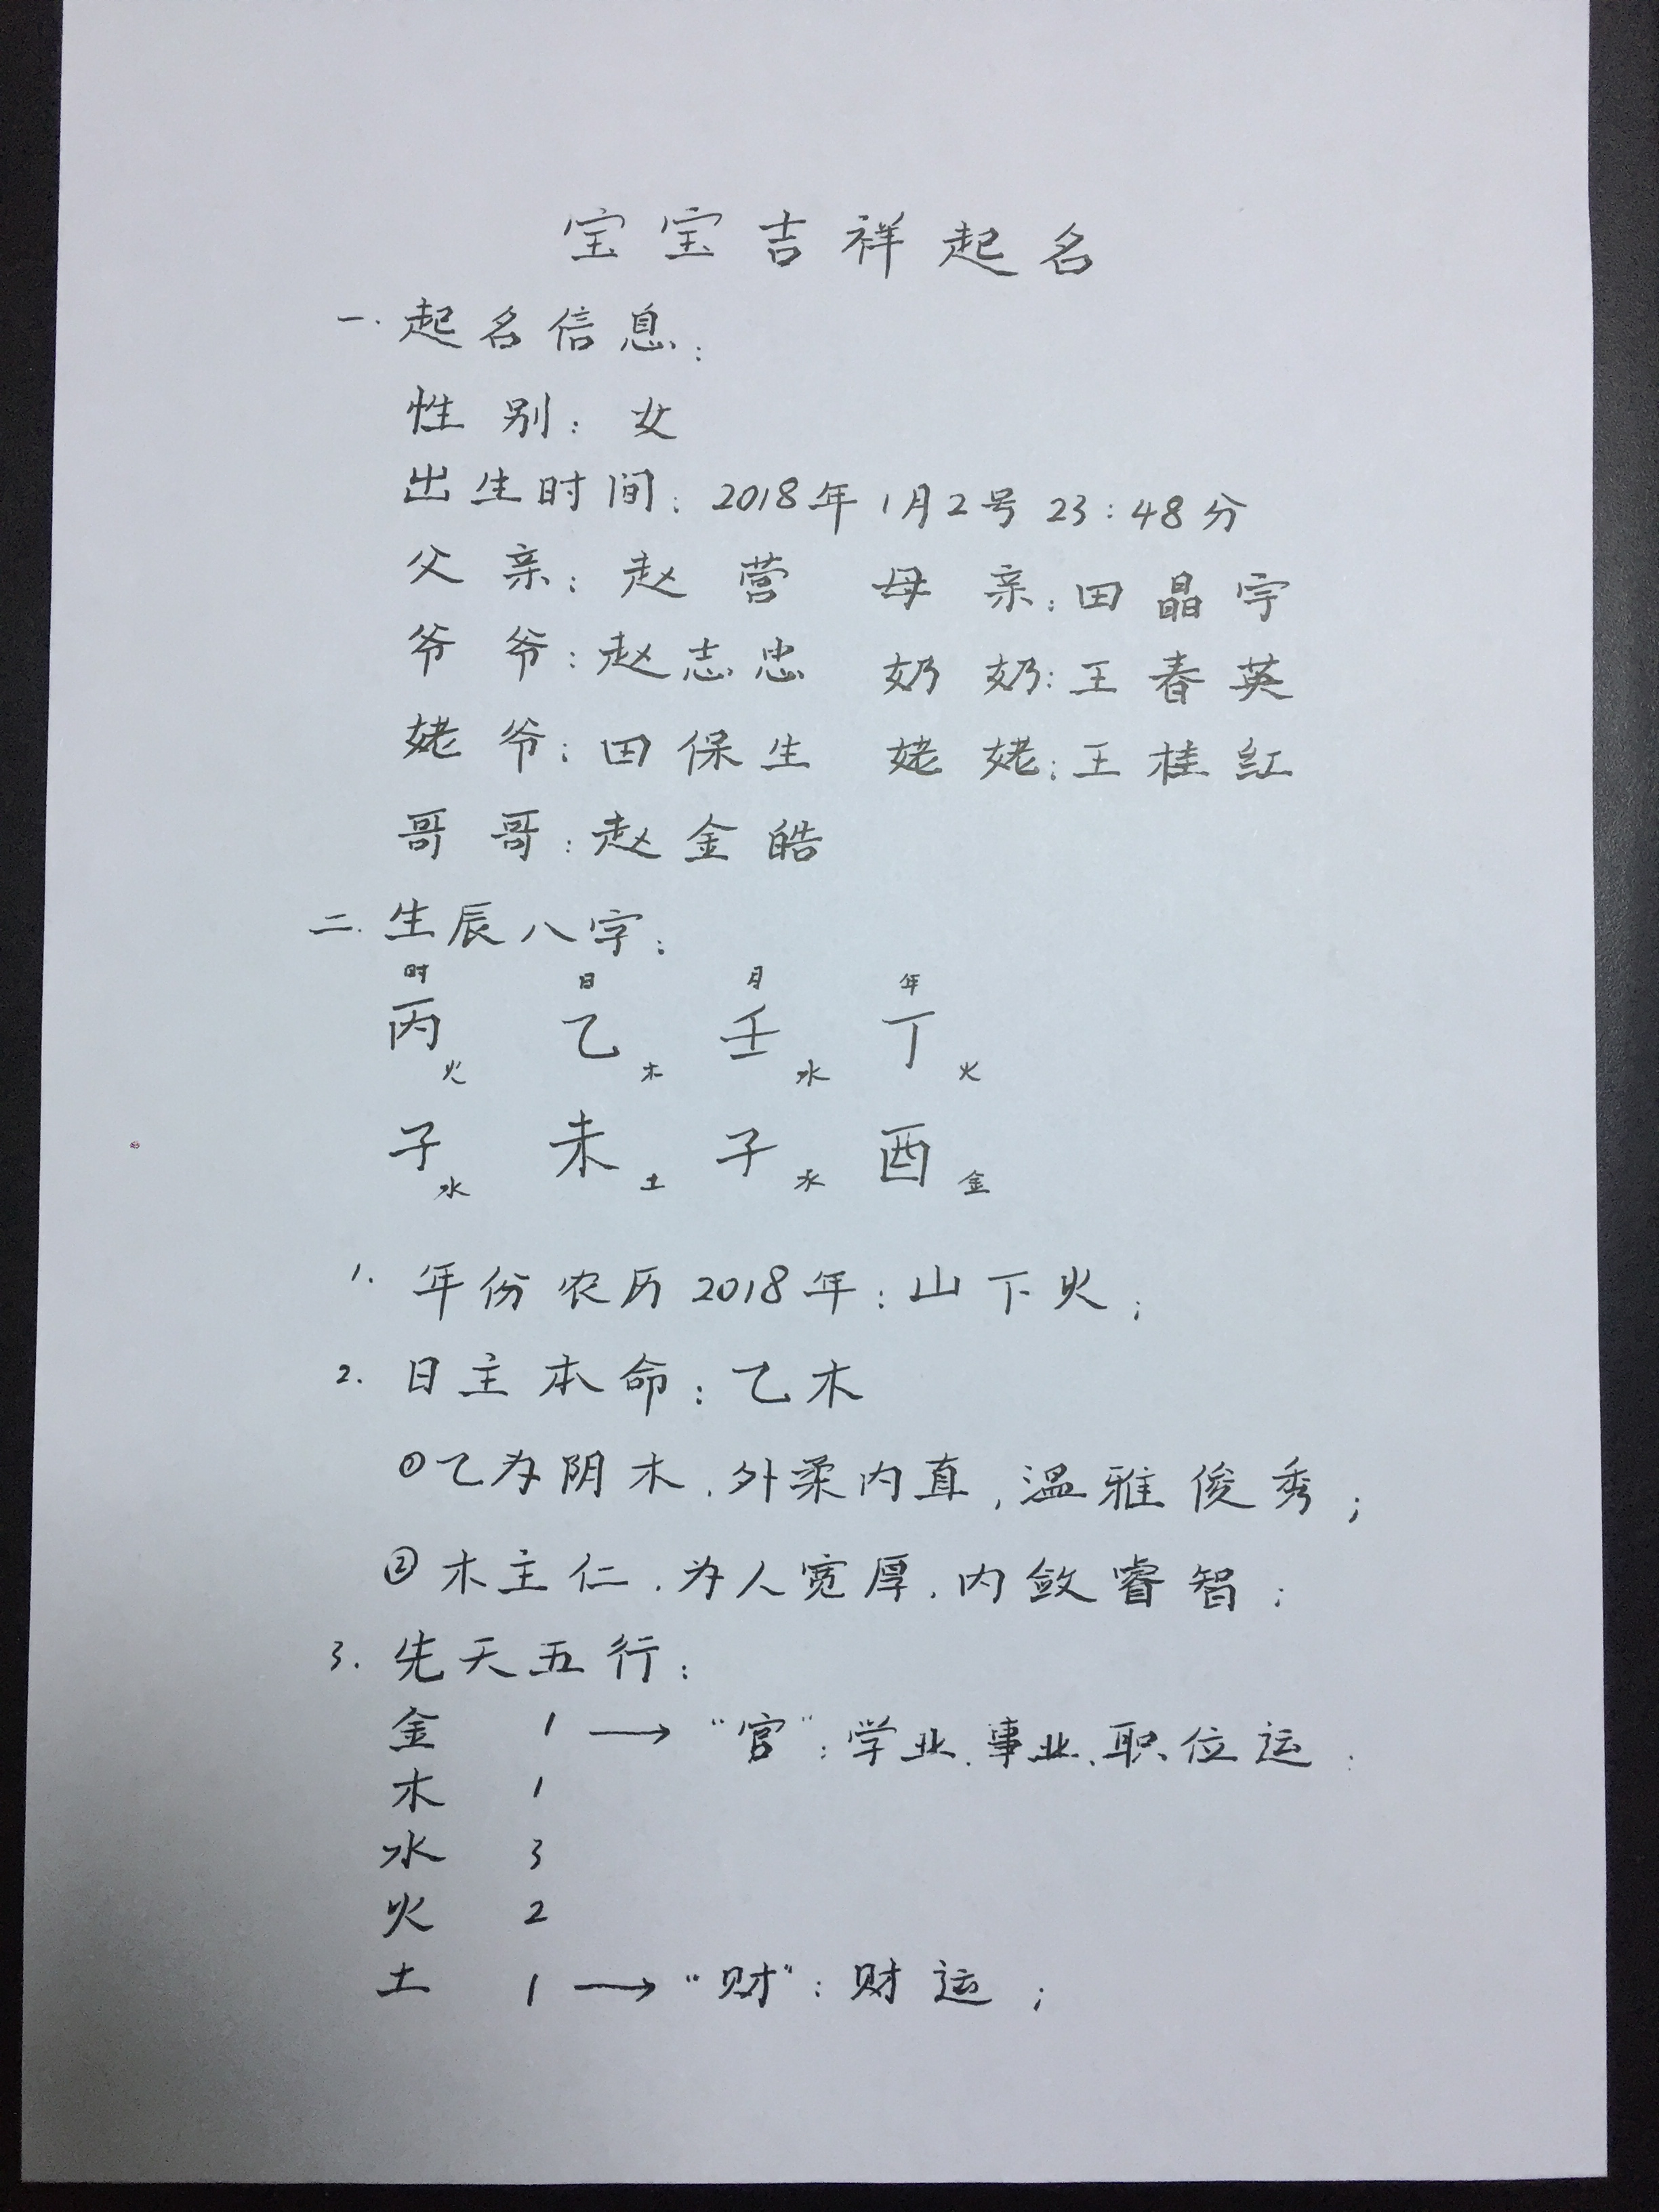 宝宝吉祥起名
一.起名信息:
性别:女
出生时间:2018年1月2号23:48分
父亲:赵营 母亲:田晶宇
爷爷:赵志忠 奶奶:王春英
姥爷:田保生 姥姥:王桂红
哥哥:赵金皓
二.生辰八字:
时 日 月 年
丙火 乙木 壬水 丁火
子水 未土 子水 酉金
1.年份农历2018年:山下火;
2.日主本命:乙木
①乙为阴木,外柔内直,温雅俊秀;
②木主仁,为人宽厚,内敛睿智;
3.先天五行:
金 1 → "官":学业、事业、职位运;
木 1
水 3
火 2
土 1 → "财":财运;